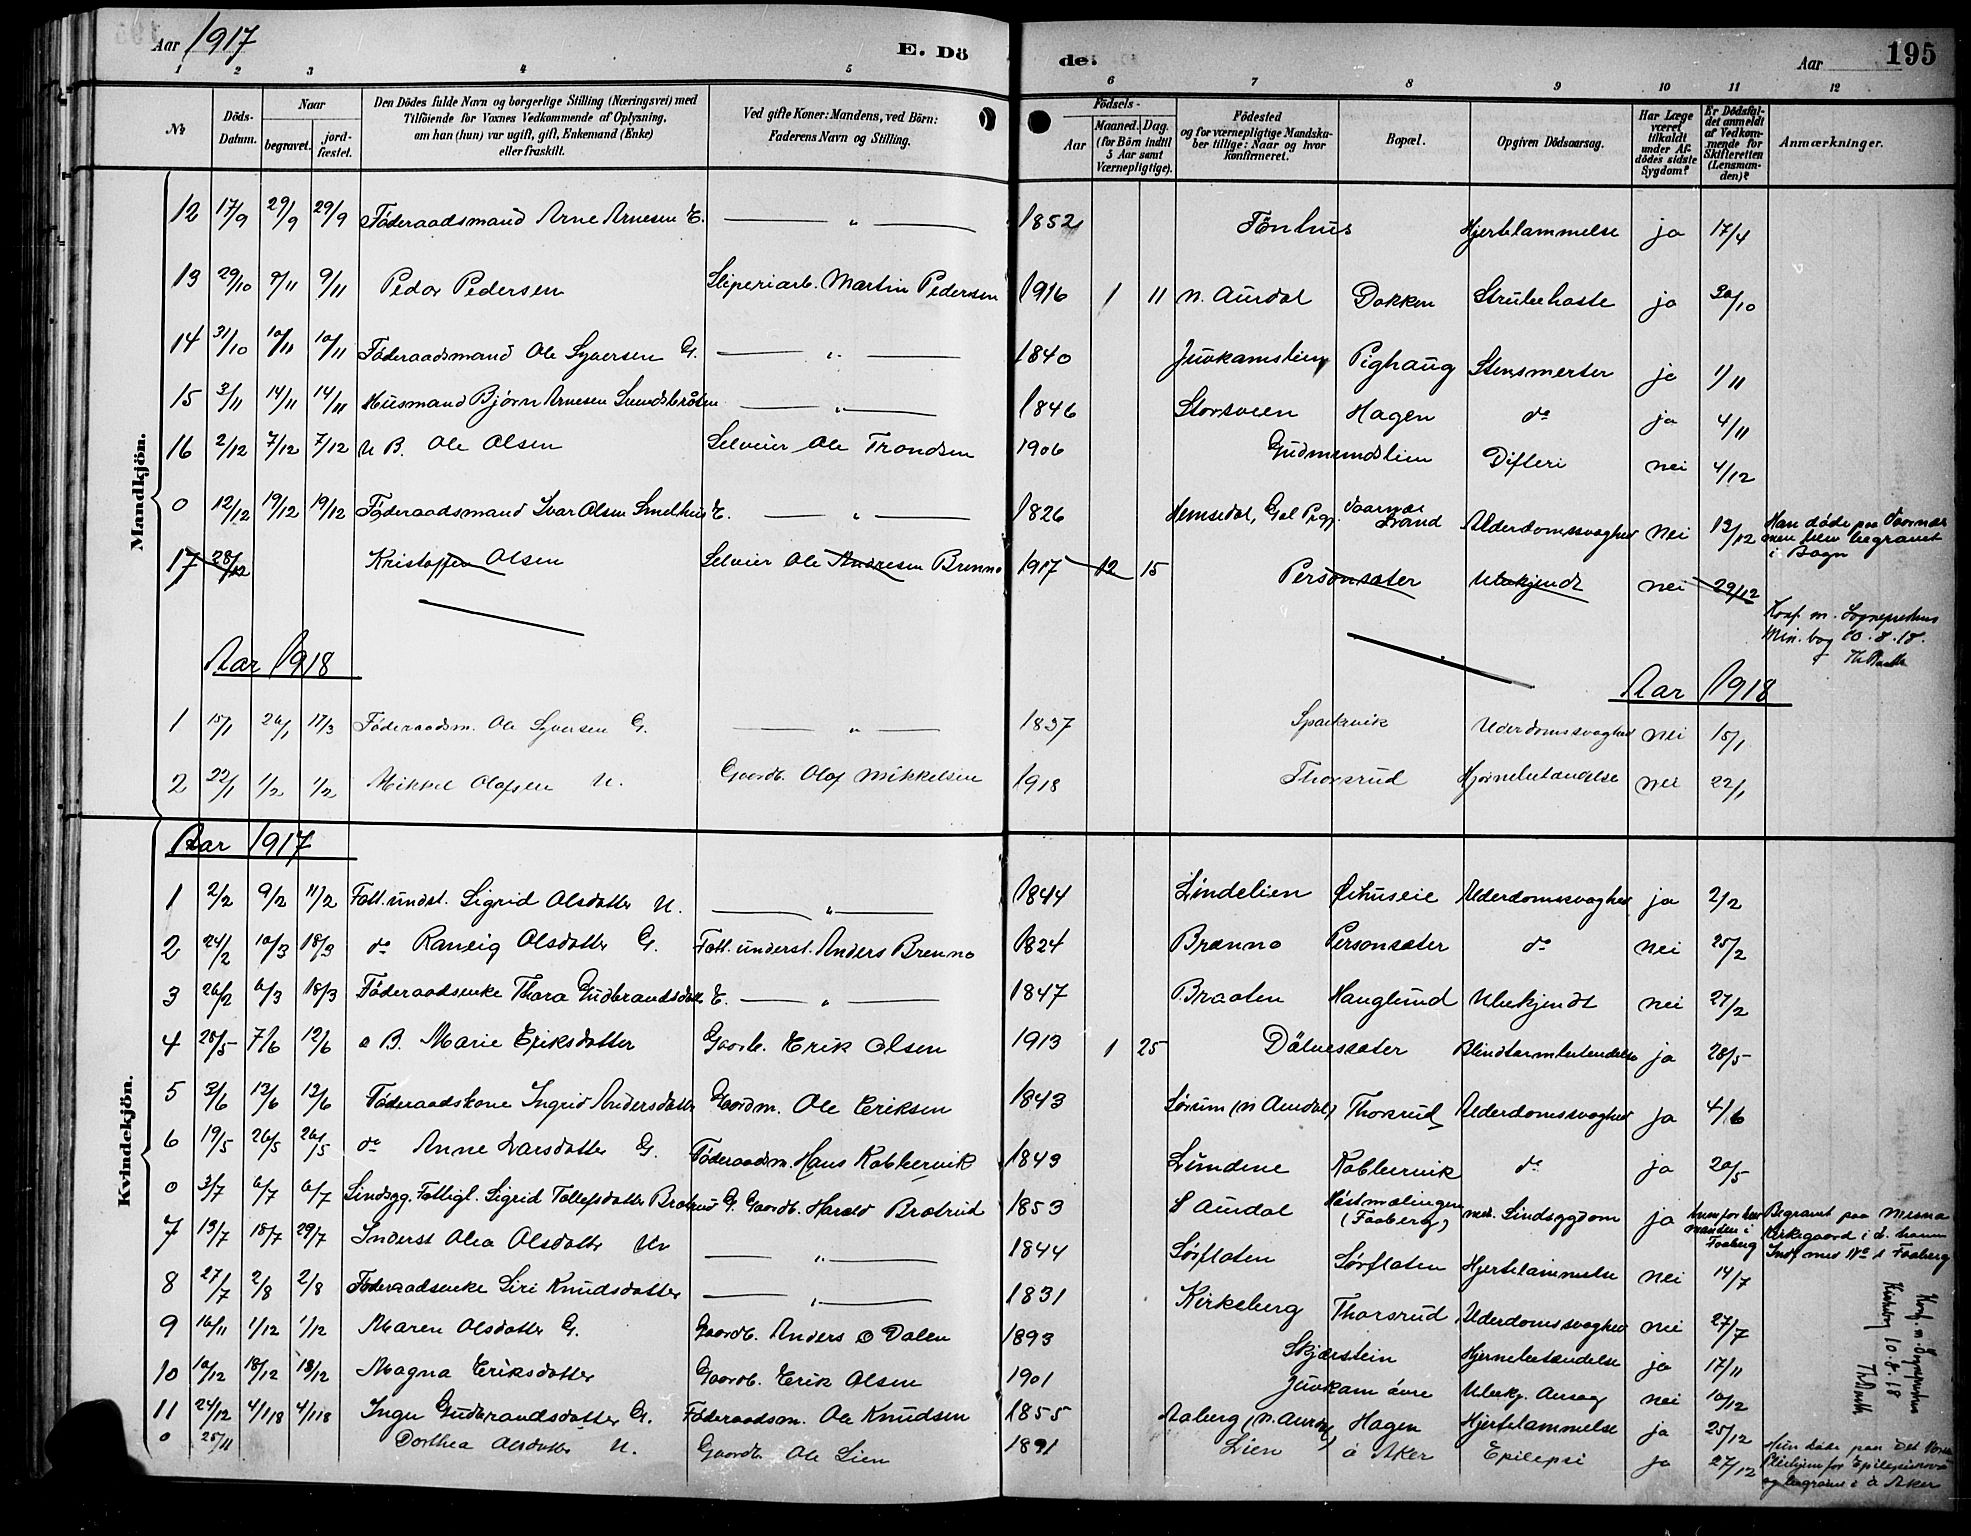 Aar 1917 E. Döde. Aar 195
1 2 3 4 5 6 7 8 9 10 11 12
No
Döds-Datum.
Naar begravet. jordfæstet.
Den Dödes fulde Navn og borgerlige Stilling (Næringsvei) med Tilföiende for Voxnes Vedkommende af Oplysning, om han (hun) var ugift, gift, Enkemand (Enke) eller fraskilt.
Ved gifte Koner: Mandens, ved Börn: Faderens Navn og Stilling.
Födsels- Aar Maaned. Dag. (for Börn indtil 3 Aar samt Værnepligtige).
Födested og for værnepligtige Mandskaber tillige: Naar og hvor konfirmeret.
Bopæl.
Opgiven Dödsaarsag.
Har Læge været tilkaldt under Afdödes sidste Sygdom?
Er Dödsfaldet anmeldt af Vedkommende for Skifteretten (Lensmanden)?
Anmærkninger.
Mandkjön.
12 17/9 29/9 29/9 Föderaadsmand Arne Arnesen E. — " — 1852 Tönhus Hjertelammelse ja 17/4
13 29/10 9/11 9/11 Peder Pedersen Sliperiarb. Martin Pedersen 1916 1 11 N. Aurdal Dokken Strubehoste ja 30/10
14 31/10 10/11 10/11 Föderaadsmand Ole Syversen G. — " — 1840 Juvkamslien Pighaug Stensmerter ja 1/11
15 3/11 14/11 14/11 Husmand Björn Arnesen Svendsbråten — " — 1846 Storsveen Hagen do ja 4/11
16 2/12 7/12 7/12 U B. Ole Olsen Selveier Ole Trondsen 1906 Gudmundslien Difteri nei 4/12
0 12/12 19/12 19/12 Föderaadsmand Ivar Olsen Smelhus E. — " — 1826 Hemsedal, Gol Pgj. Vaarnæs Strand Alderdomssvaghed nei 13/12 Han döde paa Vaarnæs men blev begravet i Bagn
17 28/12 Kristoffer Olsen Selveier Ole Andresen Brenno 1917 12 15 Personsæter Ubekjendt nei 29/12
Konf. m. Sogneprestens Min. bog 10.8.18.
Aar 1918 Aar 1918
1 15/1 26/1 17/3 Föderaadsm. Ole Syversen G. — " — 1837 Sparkevik Alderdomssvaghed nei 15/1
2 22/1 1/2 1/2 Mikkel Olafsen U. Gaardb. Olaf Mikkelsen 1918 Thorsrud Hjernebetændelse nei 22/1
Kvindekjön.
Aar 1917
1 2/2 9/2 11/2 Fatt. undst. Sigrid Olsdatter U. — " — 1844 Lindelien Öihuseie Alderdomssvaghed ja 2/2
2 24/2 10/3 18/3 do Ranveig Olsdatter G. Fatt. underst. Anders Brenno 1824 Brænno Personsæter do nei 25/2
3 26/2 6/3 18/3 Föderaadsenke Thora Gudbrandsdatter E. — " — 1847 Braaten Hauglund Ubekjendt nei 27/2
4 28/5 7/6 12/6 a B. Marie Eriksdatter Gaardb. Erik Olsen 1913 1 25 Dölvessæter Blindtarmbetendelse ja 28/5
5 3/6 12/6 12/6 Föderaadskone Ingrid Andersdatter Gaardm. Ole Eriksen 1843 Sörum (N Aurdal) Thorsrud Alderdomssvaghed ja 4/6
6 19/5 26/5 26/5 do Anne Larsdatter G. Föderaadsm. Hans Kobbervik 1843 Lundene Kobbervik do ja 20/5
0 3/7 6/7 6/7 Sindsyg. Fattigl. Sigrid Tollefsdatter Brotrud G. Gaardb. Harald Brotrud 1853 S Aurdal (Faaberg) Sindsygdom ja Begravet paa Mesna Kirkegaard i Indf. med No 1 Faaberg
7 13/7 18/7 29/7 Inderst Olea Olsdatter U. — " — 1844 Sörflaten Sörflaten Hjertelammelse nei 14/7
8 27/7 2/8 2/8 Föderaadsenke Siri Knudsdatter — " — 1831 Kirkeberg Thorsrud Alderdomssvaghed nei 27/7
9 16/11 1/12 1/12 Maren Olsdatter G. Gaardb. Anders O Dalen 1893 Skjærstein Hjernebetændelse ja 17/11
10 10/12 18/12 18/12 Magna Eriksdatter Gaardb. Erik Olsen 1901 Juvkam övre Ubekj. Aarsag nei 10/12
11 24/12 4/1 18 4/1 18 Inger Gudbrandsdatter G. Föderaadsm. Ole Knudsen 1855 Aaberg (N. Aurdal) Hagen Hjertelammelse ja 25/12
0 25/11 Dorthea Olsdatter U. Gaardb. Ole Lien 1891 Lien Ö Aker Epilepsi ja 27/12 Hun döde paa Det Pleiehjem for og begravet i Ö Aker
Konf. m. Sogneprestens Kirkebog 10.8.18